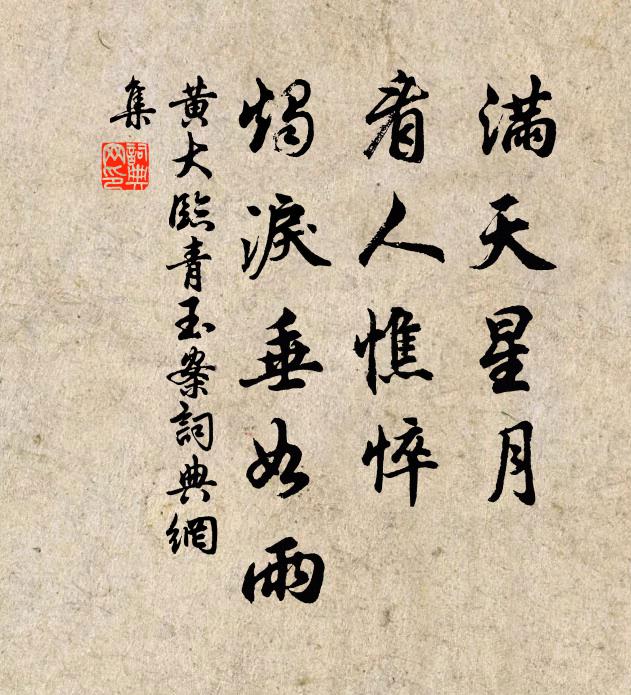 滿天星月
看人憔悴
燭淚垂如雨
黄大臨青玉案詞典網
集
詞典網印